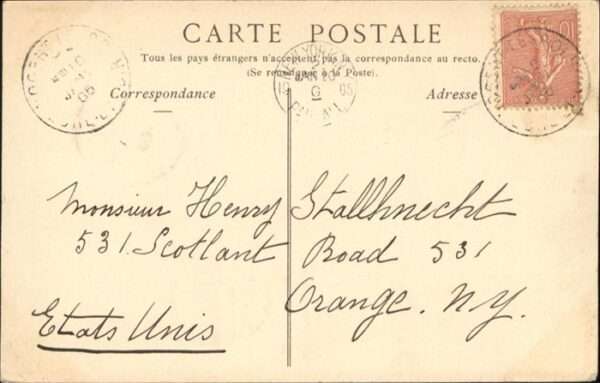 CARTE POSTALE
Tous les pays étrangers n'acceptent pas la correspondance au recto.
(Se renseigner à la Poste).
Correspondance
Adresse
NEW YORK
19 05
G
05
10
Monsieur Henry Stallknecht
531. Scotlant Road 531
Orange. NY.
Etats Unis